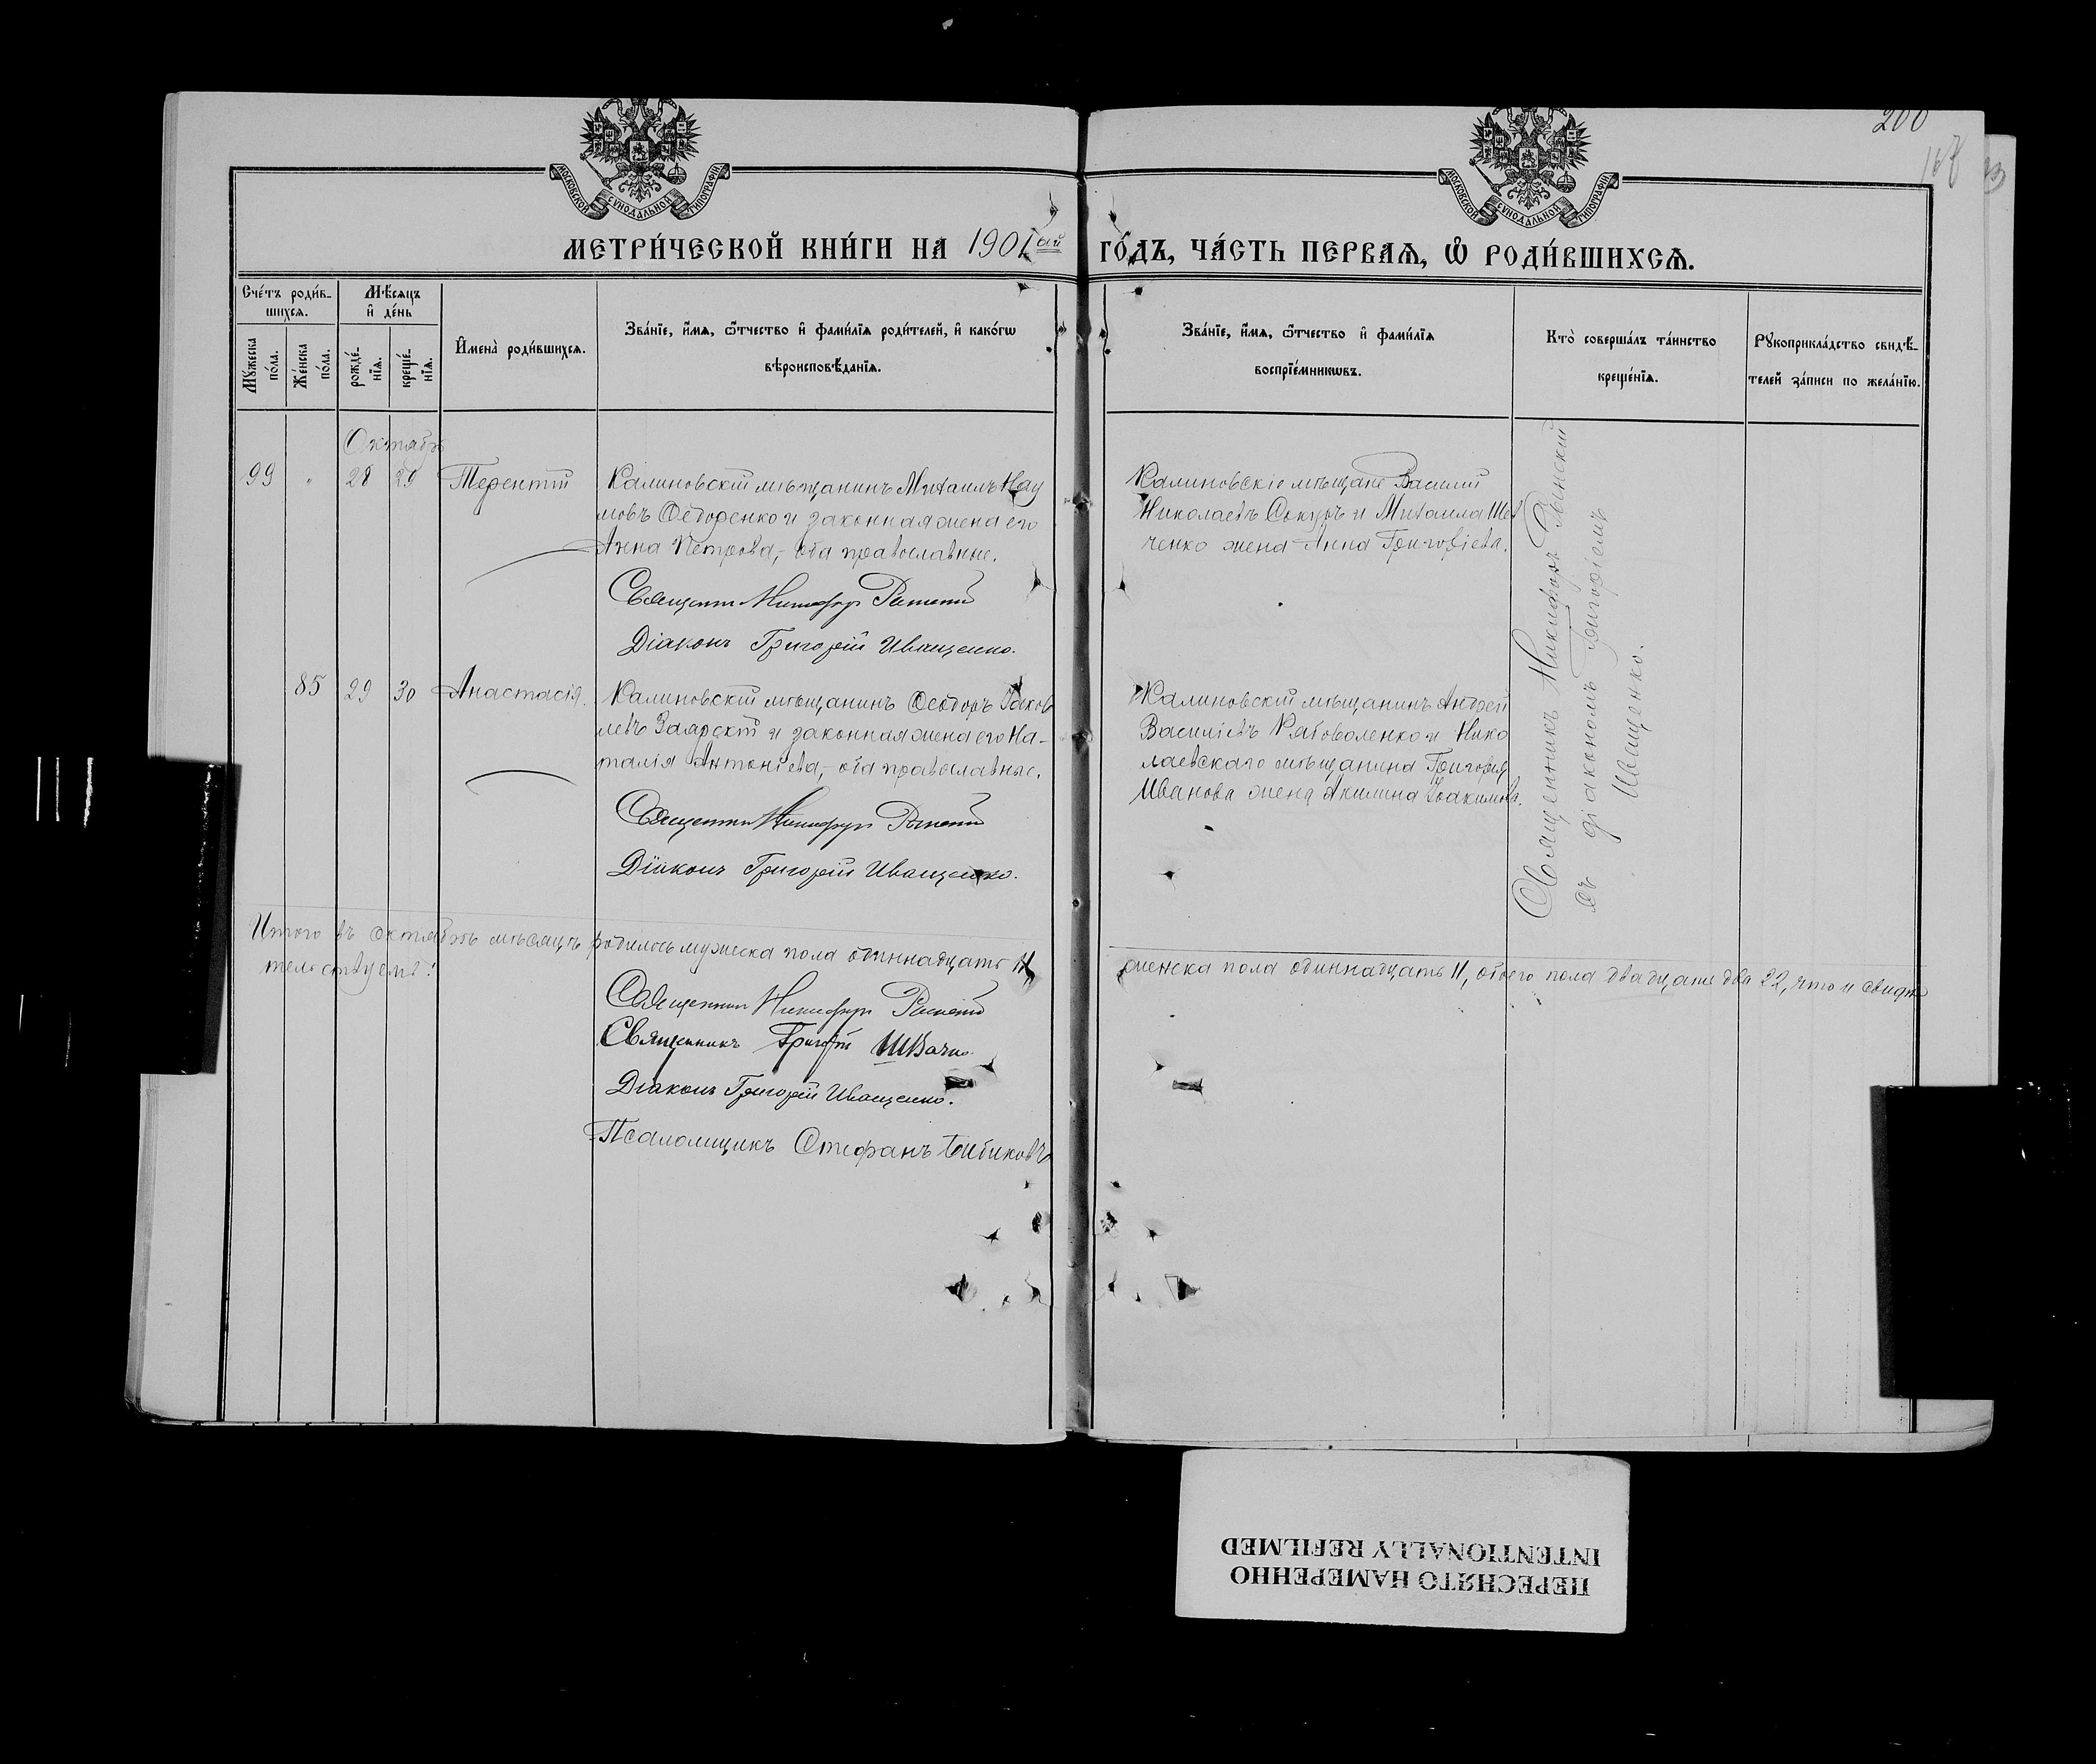 200
167
МОСКОВСКОЙ СѴНОДАЛЬНОЙ ТИПОГРАФІИ
МОСКОВСКОЙ СѴНОДАЛЬНОЙ ТИПОГРАФІИ
МЕТРИ́ЧЕСКОЙ КНИ́ГИ НА 1901ый ГО́ДЪ, ЧА́СТЬ ПЕРВАѦ, Ѡ҆ РОДИ́ВШИХСѦ.
Сче́тъ роди́в-
шихсѧ.
Мꙋ́жеска
по́ла.
Же́нска
по́ла.
Мѣ́сѧцъ
и҆ де́нь
рожде́-
нїѧ.
креще́-
нїѧ.
И҆мена̀ роди́вшихсѧ.
Зва́нїе, и҆́мѧ, ѻ҆́тчество и҆ фами́лїѧ роди́телей, и҆ како́гѡ
вѣроисповѣ́данїѧ.
Зва́нїе, и҆́мѧ, ѻ҆́тчество и҆ фами́лїѧ
воспрїе́мникѡвъ.
Кто̀ соверша́лъ та́инство
креще́нїѧ.
Рꙋкоприкла́дство свидѣ́-
телей за́писи по жела́нїю.
Октябрь
99 " 28 29 Терентій
Калиновскій мѣщанинъ Михаилъ Нау
мовъ Ѳедоренко и законная жена его
Анна Петрова, - оба православные.
Священникъ Никифоръ Рынскій
Діаконъ Григорій Иващенко.
Калиновскіе мѣщане Василій
Николаевъ Сокуръ и Михаила Шев
ченко жена Анна Григоріева.
85 29 30 Анастасія.
Калиновскій мѣщанинъ Ѳеодоръ Іаков
левъ Заярскій и законная жена его На-
талія Антоніева, - оба православные.
Священникъ Никифоръ Рынскій
Діаконъ Григорій Иващенко.
Калиновскій мѣщанинъ Андрей
Василіевъ Рабоволенко и Нико
лаевскаго мѣщанина Григорія
Иванова жена Акилина Іоакимова.
Священникъ Никифоръ Рынскій
съ діакономъ Григоріемъ
Иващенко.
Итого въ октябрѣ мѣсяцѣ родилось мужеска пола одиннадцать 11, женска пола одиннадцать 11, обоего пола двадцать два 22, что и свидѣ
тельствуемъ:
Священникъ Никифоръ Рынскій
Священникъ Григорій Швачко.
Діаконъ Григорій Иващенко.
Псаломщикъ Стефанъ Бибиковъ
ПЕРЕСНЯТО НАМЕРЕННО
INTENTIONALLY REFILMED